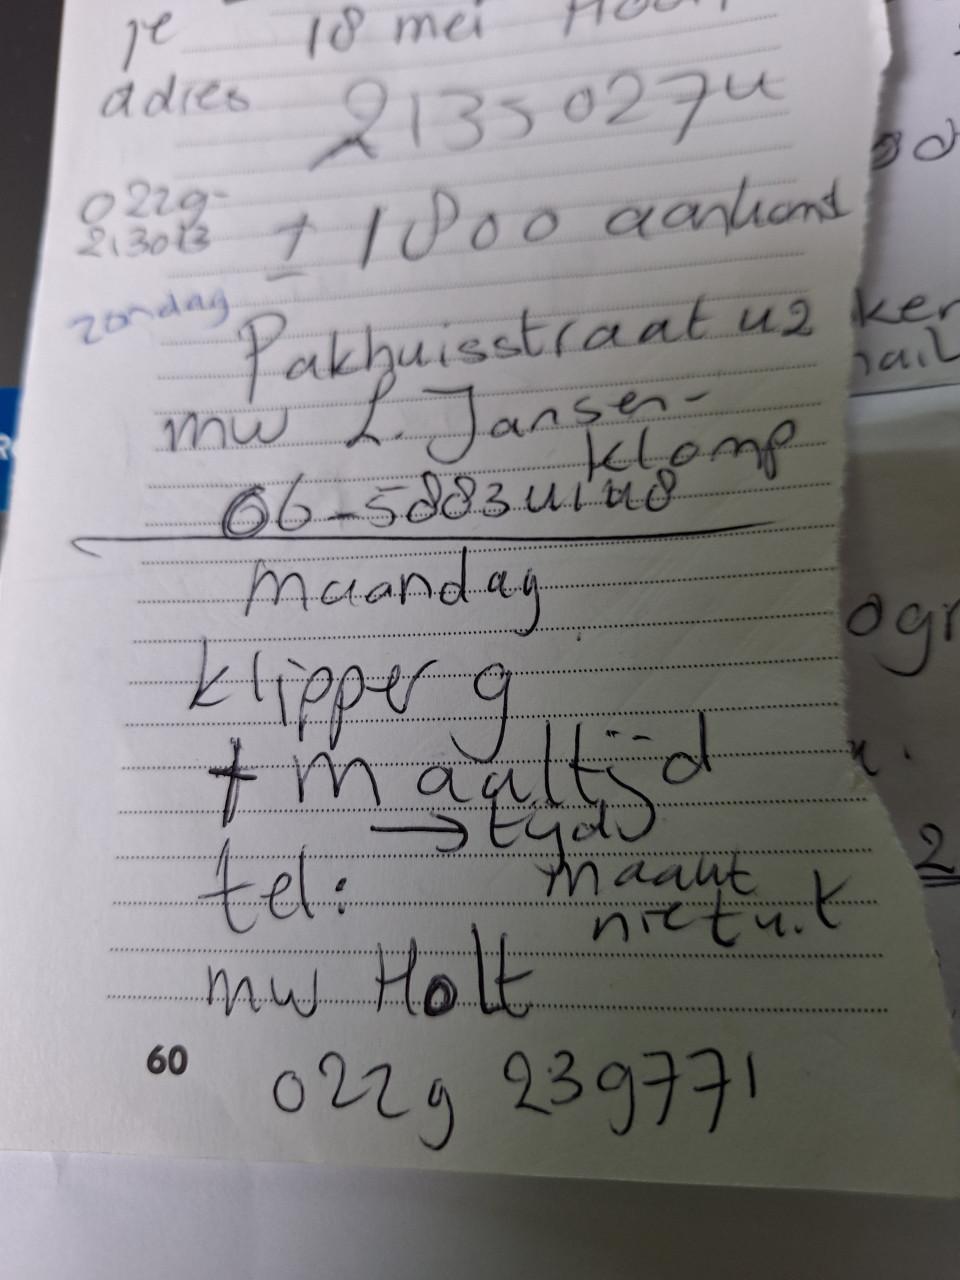 je 18 mei
adres 2135027u
0229-
213013 ± 1800 aankomst
zondag
Pakhuisstraat 42
mw L. Jansen-
Klomp
06-58834148
maandag
klipper 9
+ maaltijd
→ tijd
tel: maakt
niet uit
mw Holt
60
0229 239771
ker
hail
ogr
2